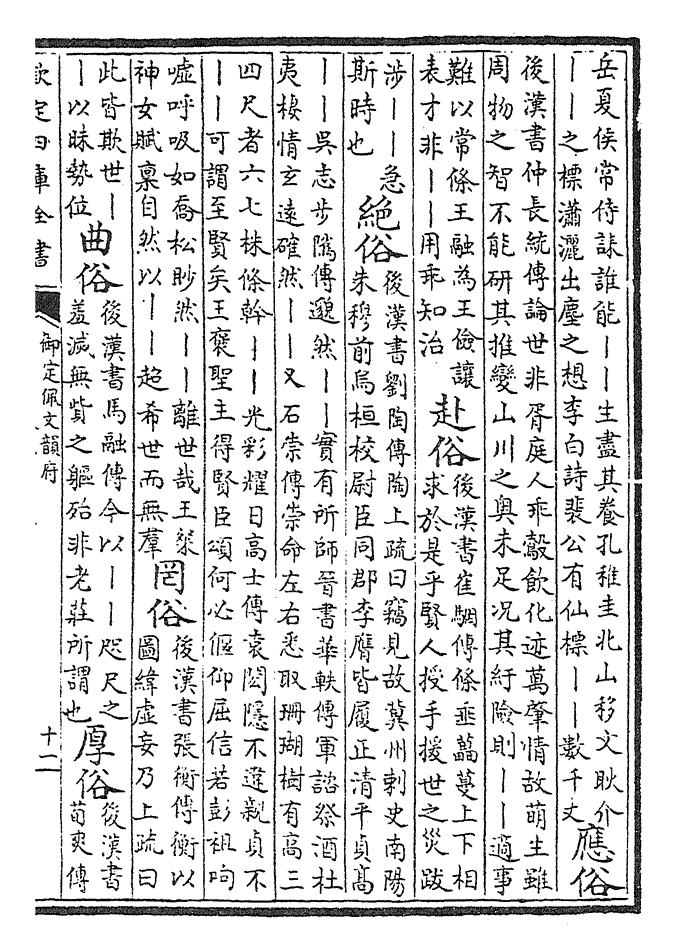 岳夏侯常侍誄誰能丨丨生盡其養孔稚圭北山移文耿介
丨丨之標瀟灑出塵之想李白詩裴公有仙標丨丨數千丈
應俗
後漢書仲長統傳論世非胥庭人乖鷇飲化迹萬肇情故萌生雖
周物之智不能研其推變山川之奥未足况其紆險則丨丨適事
難以常條王融為王儉讓
表才非丨丨用乖知治
赴俗
後漢書崔駰傳條垂藟蔓上下相
求於是乎賢人授手援世之災跋
涉丨丨急
斯時也
絕俗
後漢書劉陶傳陶上疏曰竊見故冀州刺史南陽
朱穆前烏桓校尉臣同郡李膺皆履正清平貞高
丨丨吳志步隲傳邈然丨丨實有所師晉書華軼傳軍諮祭酒杜
夷棲情玄遠確然丨丨又石崇傳崇命左右悉取珊瑚樹有高三
四尺者六七株條幹丨丨光彩耀日高士傳袁閎隱不違親貞不
丨丨可謂至賢矣王褒聖主得賢臣頌何必偃仰屈信若彭祖呴
嘘呼吸如喬松眇然丨丨離世哉王粲
神女賦稟自然以丨丨超希世而無羣
罔俗
後漢書張衡傳衡以
圖緯虛妄乃上疏曰
此皆欺世丨
丨以昧勢位
曲俗
後漢書馬融傳今以丨丨咫尺之
羞滅無貲之軀殆非老莊所謂也
厚俗
後漢書
荀爽傳
欽定四庫全書
御定佩文韻府
十二